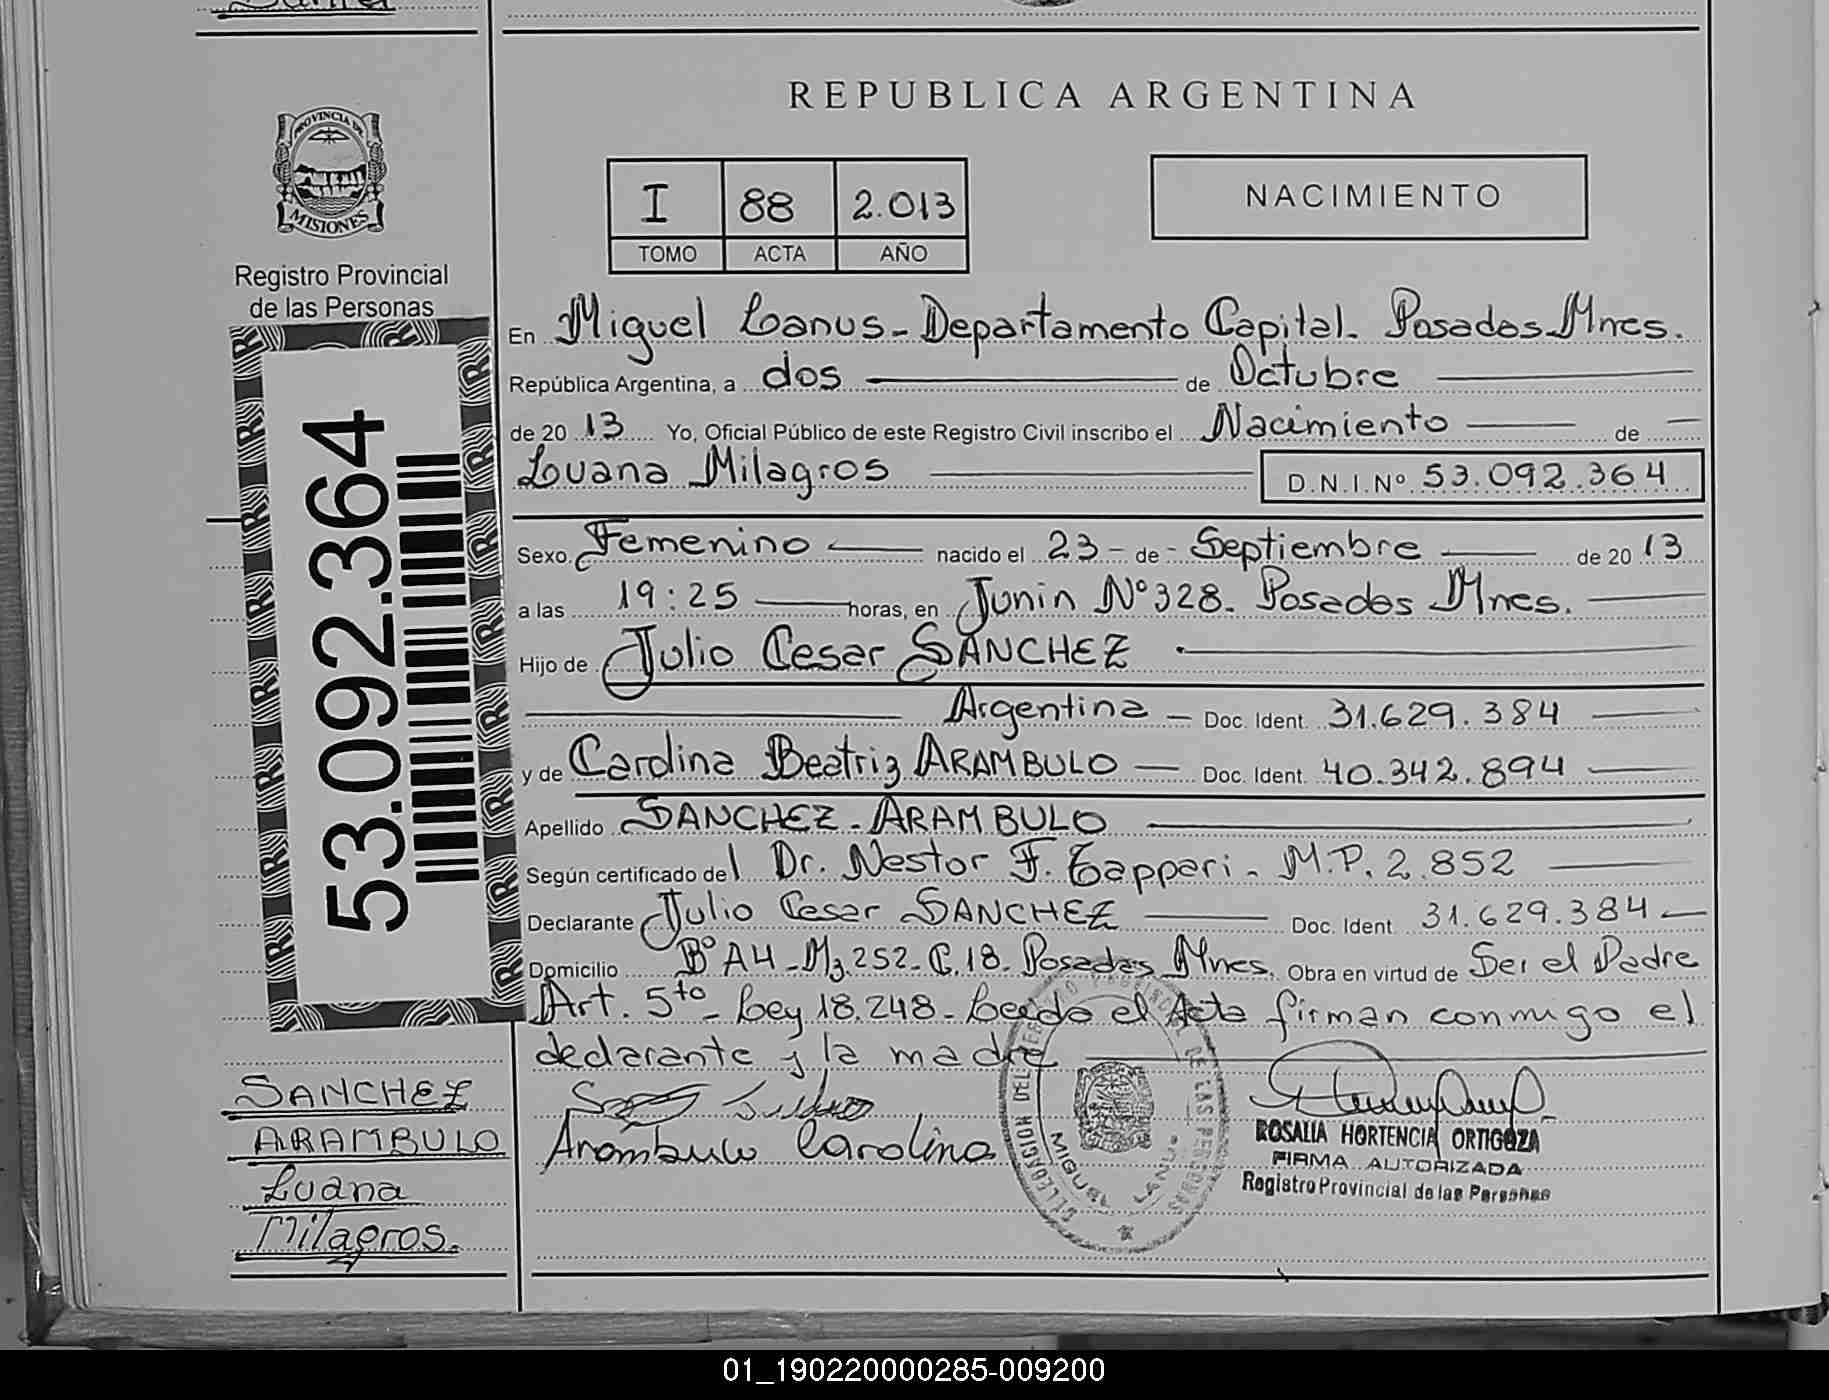 REPUBLICA ARGENTINA
PROVINCIA DE
MISIONES
Registro Provincial
de las Personas
I 88 2.013
TOMO ACTA AÑO
NACIMIENTO
53.092.364
En Miguel Lanus - Departamento Capital. Posadas Mnes.
República Argentina, a dos de Octubre
de 20 13 Yo, Oficial Público de este Registro Civil inscribo el Nacimiento de
Luana Milagros D.N.I.Nº 53.092.364
Sexo Femenino nacido el 23 - de - Septiembre de 20 13
a las 19:25 horas, en Junin Nº 328. Posadas Mnes.
Hijo de Julio Cesar SANCHEZ
Argentina - Doc. Ident. 31.629.384
y de Carolina Beatriz ARAMBULO - Doc. Ident. 40.342.894
Apellido SANCHEZ - ARAMBULO
Según certificado del Dr. Nestor F. Tappari - M.P. 2.852
Declarante Julio Cesar SANCHEZ Doc. Ident 31.629.384
Domicilio Bº A4 - Mz. 252 - C. 18. Posadas Mnes. Obra en virtud de Ser el Padre
Art. 5to - Ley 18.248 - Leida el Acta firman conmigo el
declarante y la madre
SANCHEZ
ARAMBULO
Luana
Milagros.
Arambulo Carolina
DELEGACION DEL REGISTRO PROVINCIAL DE LAS PERSONAS
MIGUEL LANUS
ROSALIA HORTENCIA ORTIGOZA
FIRMA AUTORIZADA
Registro Provincial de las Personas
01_190220000285-009200